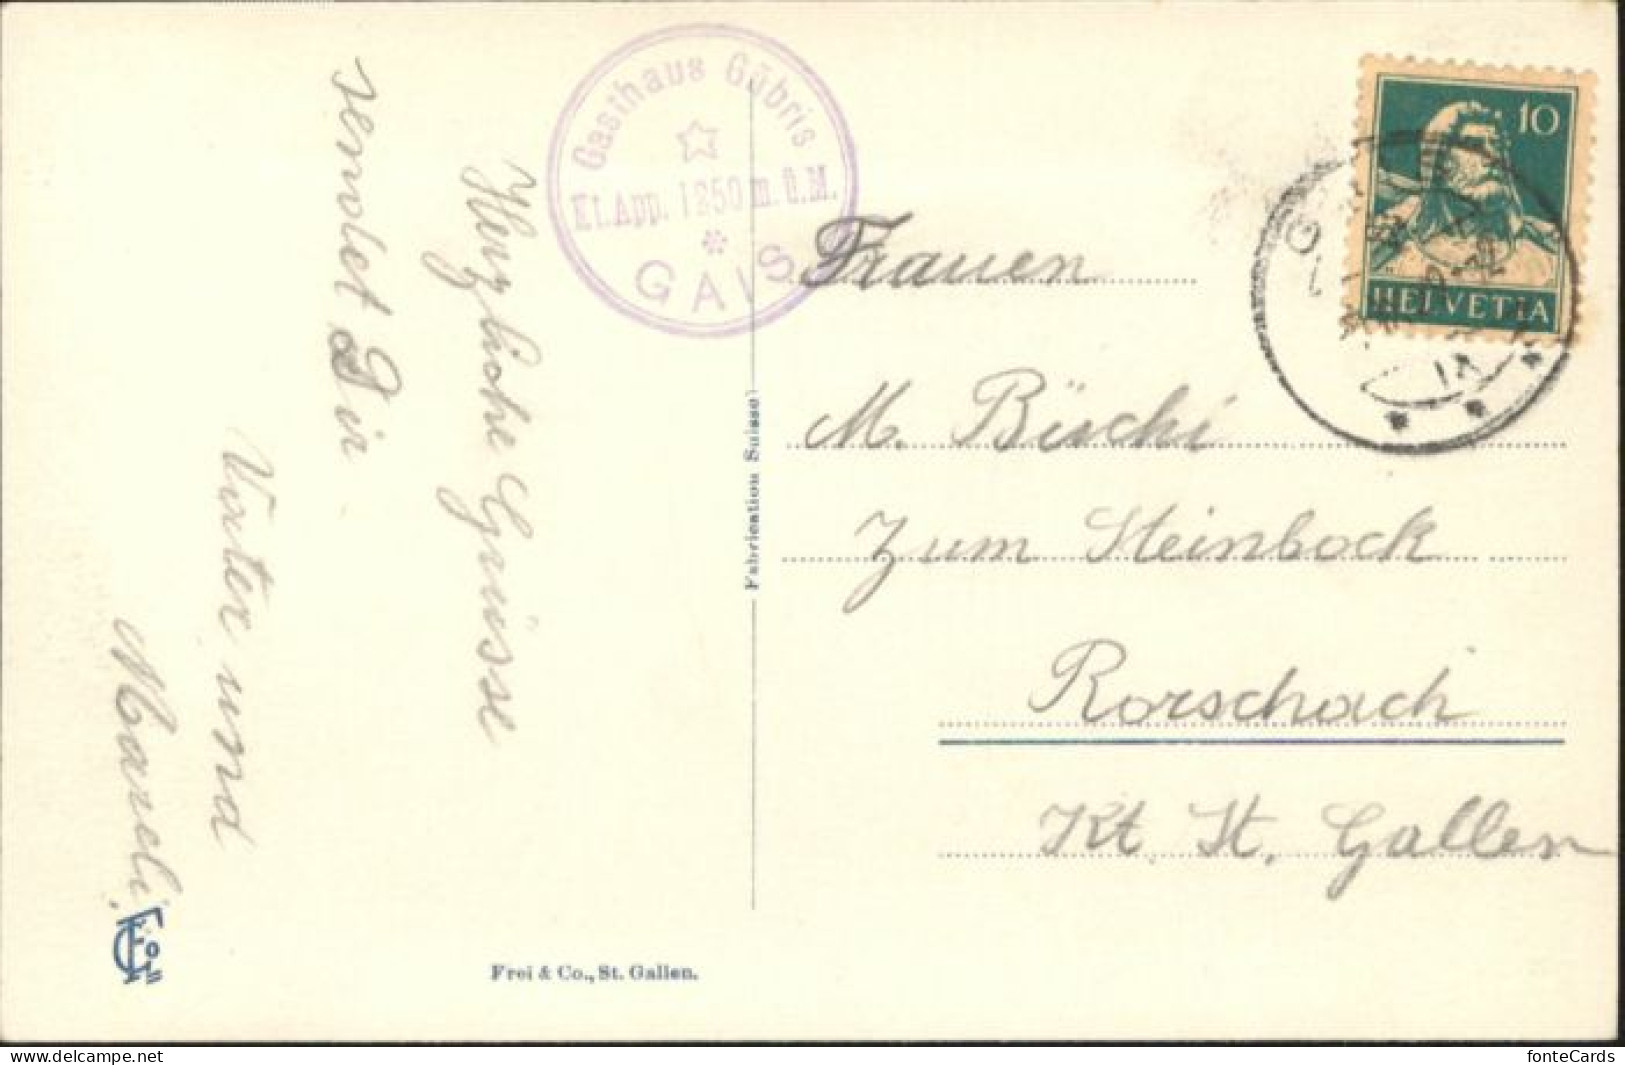 Gasthaus Gäbris
Kt. App. 1250 m. ü. M.
GAIS
Herzliche Grüsse
sendet Dir
Vater und
Mareli.
Fabrication Suisse
Frei & Co., St. Gallen.
10
HELVETIA
Frauen
M. Büschi
Zum Steinbock
Rorschach
Kt. St. Gallen
delcampe.net
fonteCards